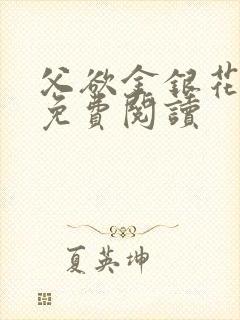 父欲金銀花
免費閱讀
夏英坤